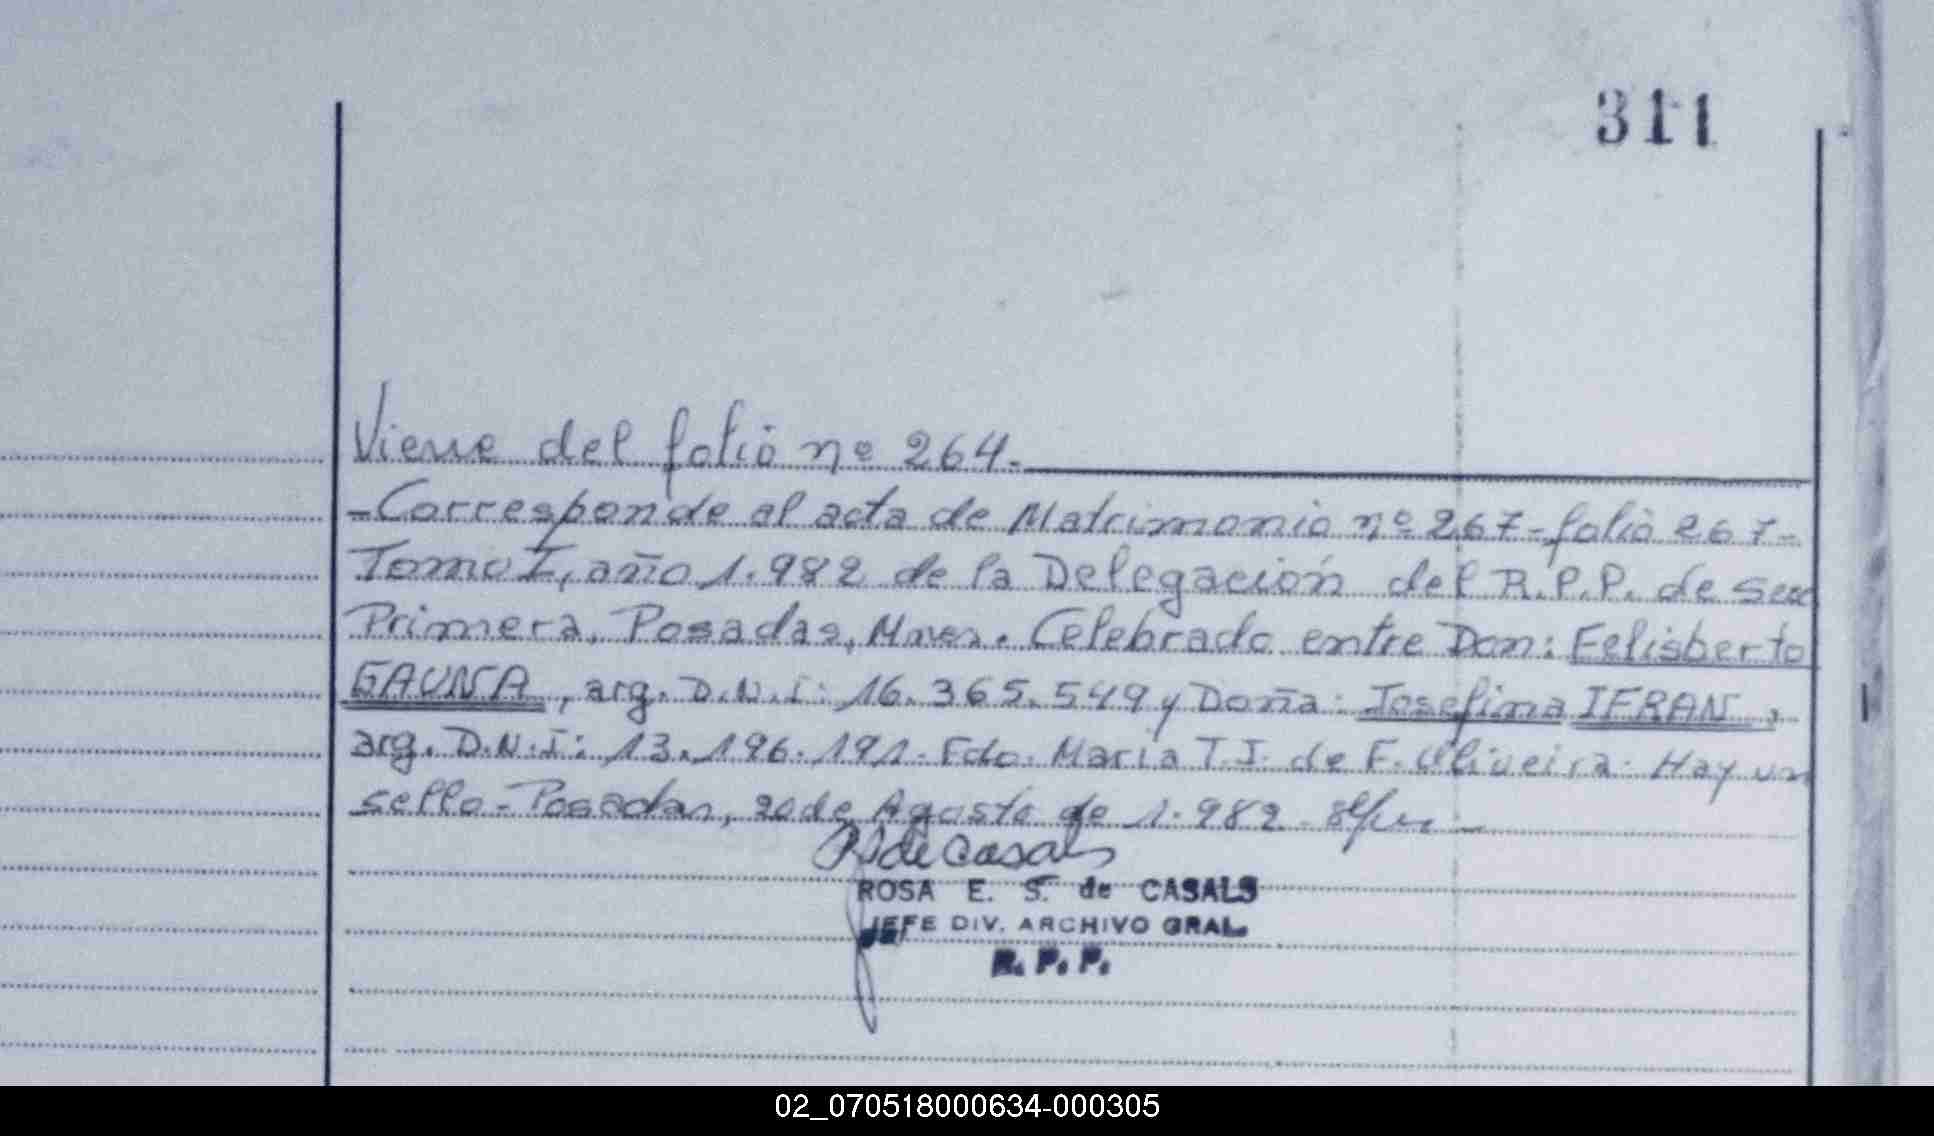 311
Viene del folio nº 264.-
-Corresponde al acta de Matrimonio nº 267-folio 267-
Tomo I, año 1.982 de la Delegación del R.P.P. de Secc
Primera, Posadas, Mnes. Celebrado entre Don: Felisberto
GAUNA, arg. D.N.I: 16.365.549 y Doña: Josefina IFRAN,
arg. D.N.I: 13.196.191. Fdo. Maria T.J. de F. Oliveira. Hay un
sello-Posadas, 20 de Agosto de 1.982.
RSdeCasals
ROSA E. S. de CASALS
JEFE DIV. ARCHIVO GRAL.
R. P. P.
02_070518000634-000305